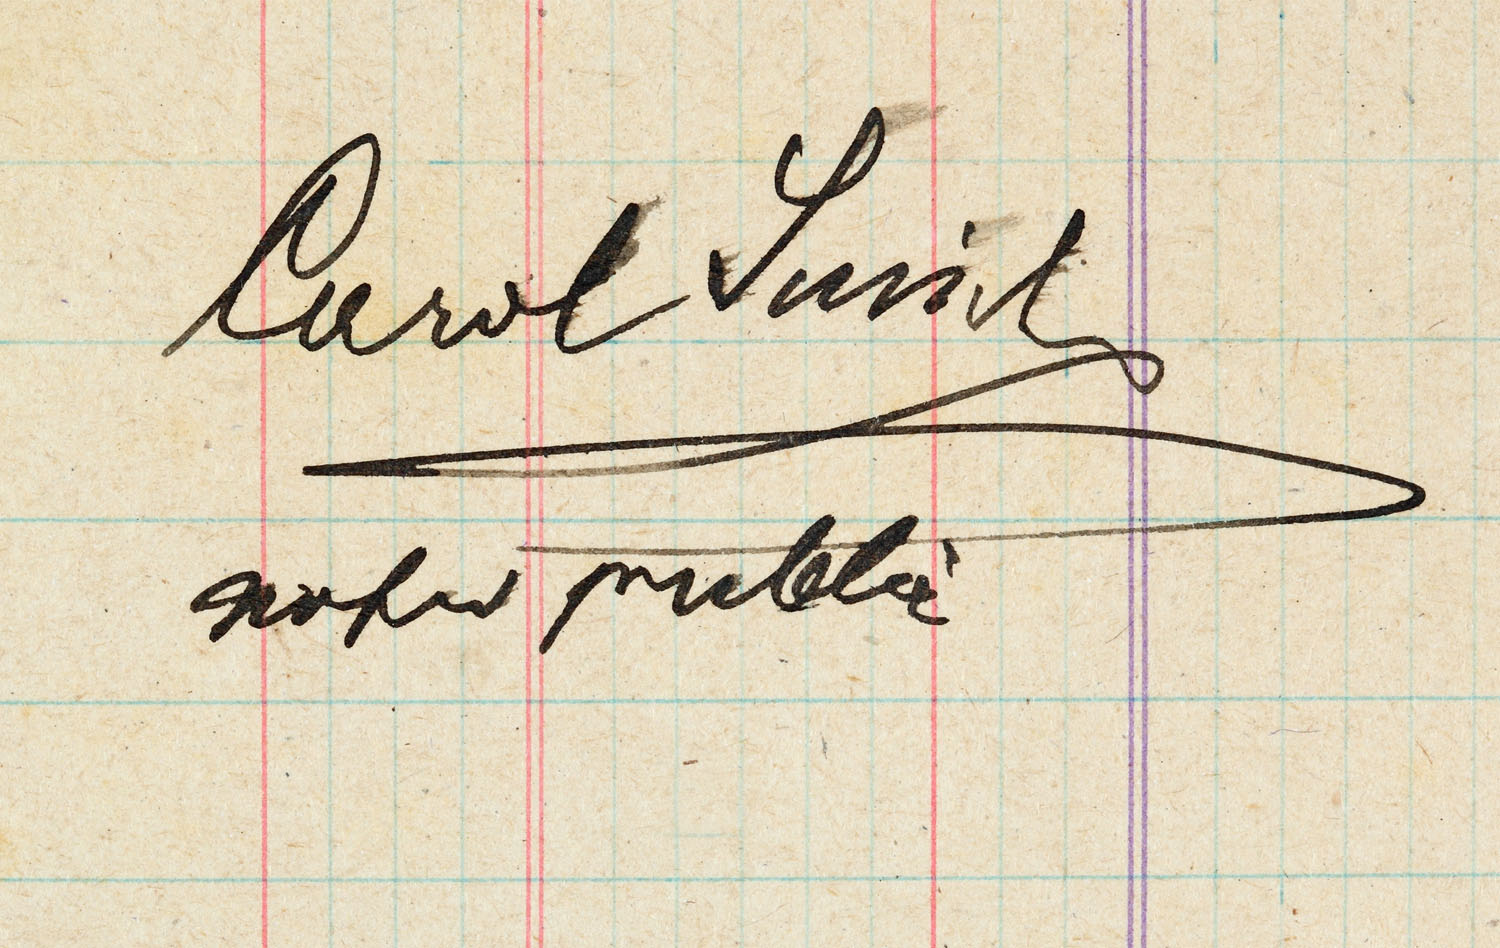 Carol Smith
notary public